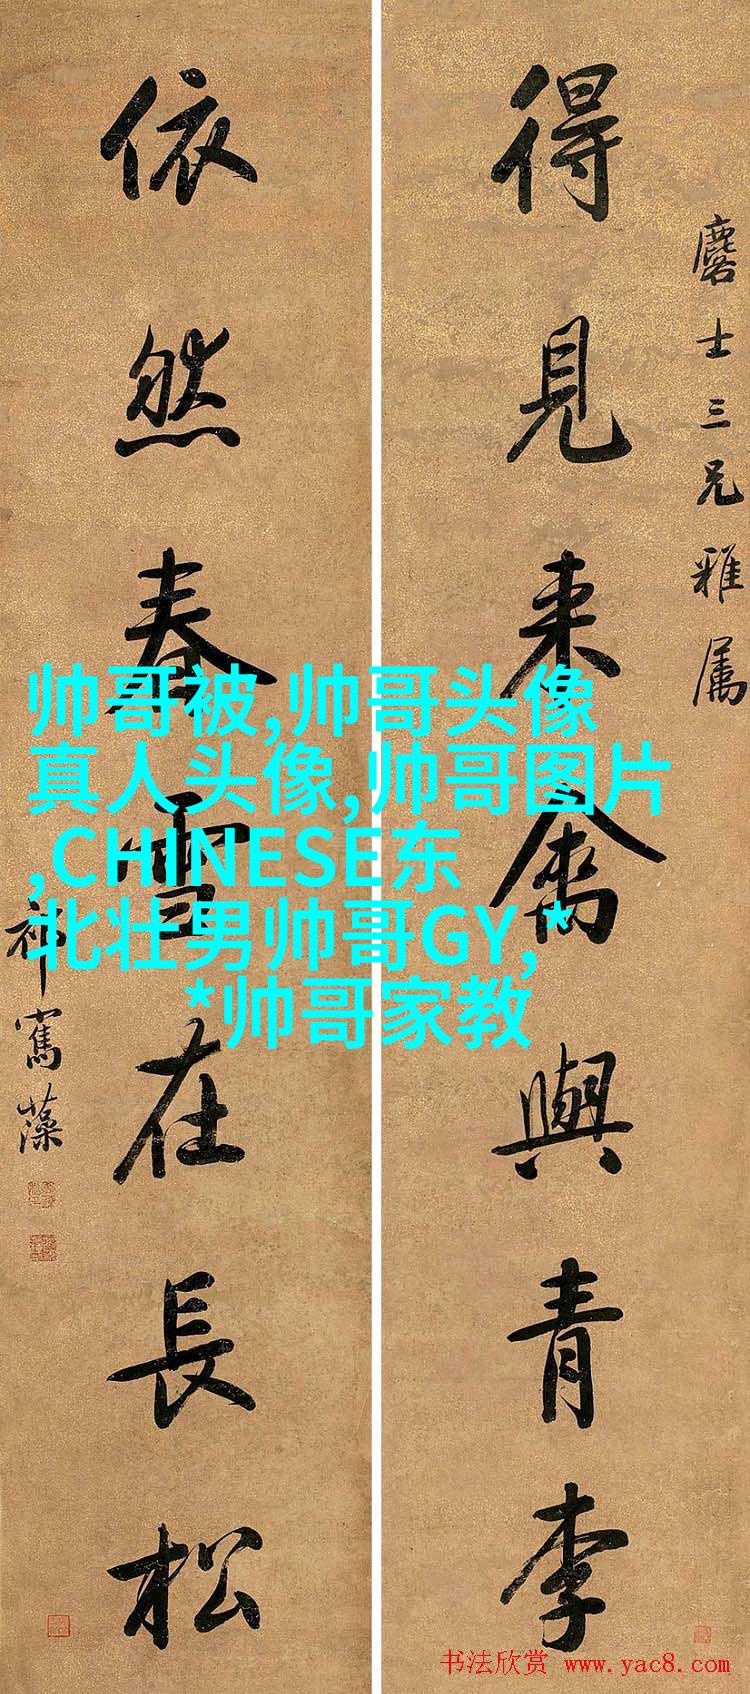 得見来禽與青李
麐士三兄雅属
依然春雪在長松
祁寯藻
帅哥被,帅哥头像
真人头像,帅哥图片
,CHINESE东
北壮男帅哥GY,*
*帅哥家教
书法欣赏 www.yac8.com